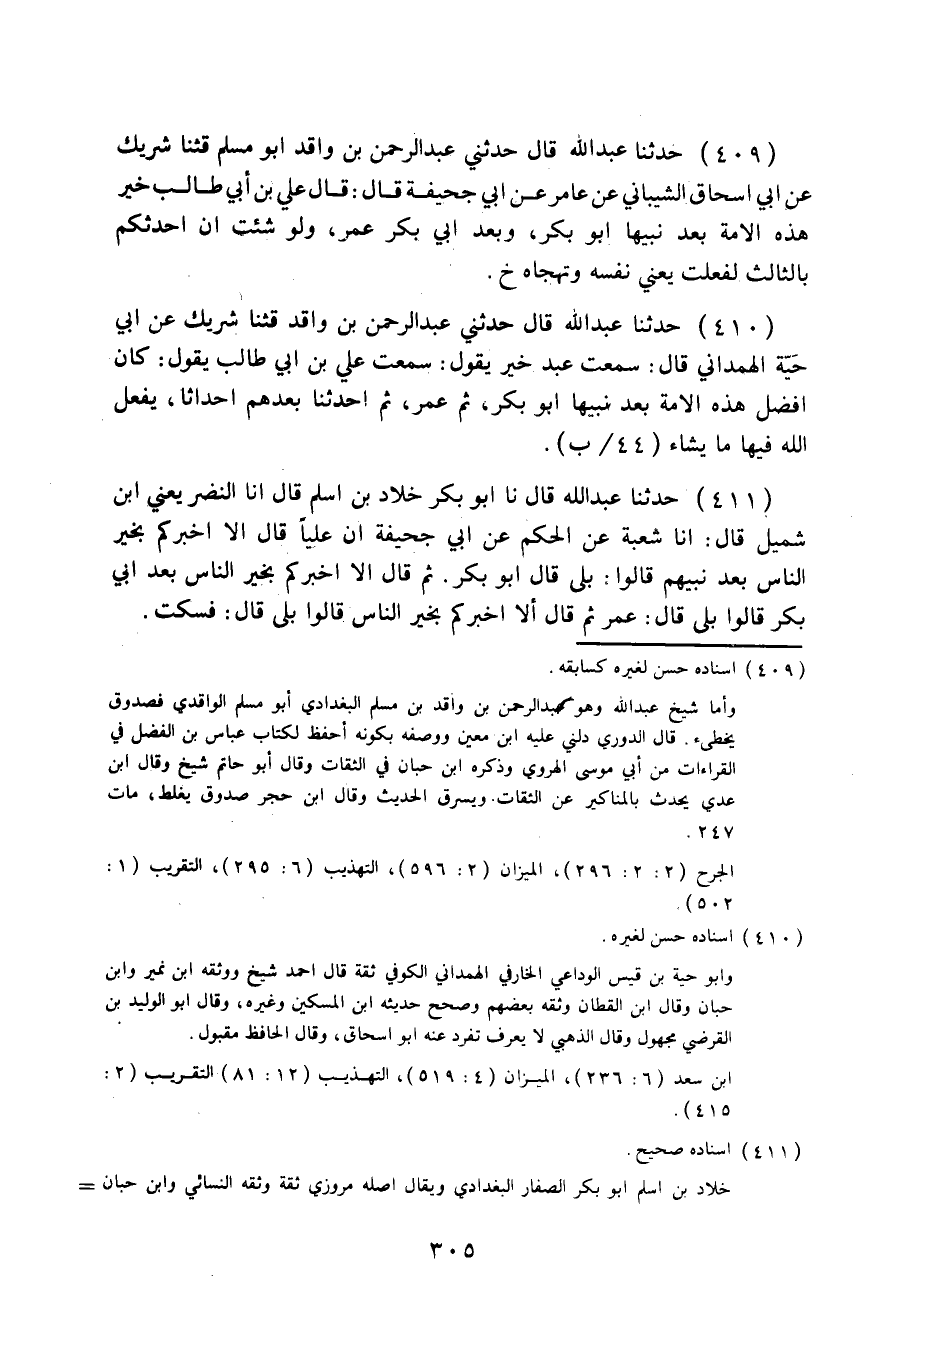 (٤٠٩) حدثنا عبدالله قال حدثني عبدالرحمن بن واقد ابو مسلم قثنا شريك
عن ابي اسحاق الشيباني عن عامر عن ابي جحيفة قال: قال علي بن أبي طالب خير
هذه الامة بعد نبيها ابو بكر، وبعد ابي بكر عمر، ولو شئت ان احدثكم
بالثالث لفعلت يعني نفسه وتهجاه خ.
(٤١٠) حدثنا عبدالله قال حدثني عبدالرحمن بن واقد قثنا شريك عن ابي
حَيّة الهمداني قال: سمعت عبد خير يقول: سمعت علي بن ابي طالب يقول: كان
افضل هذه الامة بعد نبيها ابو بكر، ثم عمر، ثم احدثنا بعدهم احداثا، يفعل
الله فيها ما يشاء (٤٤/ ب).
(٤١١) حدثنا عبدالله قال نا ابو بكر خلاد بن اسلم قال انا النضر يعني ابن
شميل قال: انا شعبة عن الحكم عن ابي جحيفة ان علياً قال الا اخبركم بخير
الناس بعد نبيهم قالوا: بلى قال ابو بكر. ثم قال الا اخبركم بخير الناس بعد ابي
بكر قالوا بلى قال: عمر ثم قال ألا اخبركم بخير الناس قالوا بلى قال: فسكت.
(٤٠٩) اسناده حسن لغيره كسابقه.
وأما شيخ عبدالله وهو عبدالرحمن بن واقد بن مسلم البغدادي أبو مسلم الواقدي فصدوق
يخطىء. قال الدوري دلني عليه ابن معين ووصفه بكونه أحفظ لكتاب عباس بن الفضل في
القراءات من أبي موسى الهروي وذكره ابن حبان في الثقات وقال أبو حاتم شيخ وقال ابن
عدي يحدث بالمناكير عن الثقات. ويسرق الحديث وقال ابن حجر صدوق يغلط، مات
٢٤٧.
الجرح (٢: ٢: ٢٩٦)، الميزان (٢: ٥٩٦)، التهذيب (٦: ٢٩٥)، التقريب (١:
٥٠٢).
(٤١٠) اسناده حسن لغيره.
وابو حية بن قيس الوداعي الخارفي الهمداني الكوفي ثقة قال احمد شيخ ووثقه ابن نمير وابن
حبان وقال ابن القطان وثقه بعضهم وصحح حديثه ابن المسكين وغيره، وقال ابو الوليد بن
القرضي مجهول وقال الذهبي لا يعرف تفرد عنه ابو اسحاق، وقال الحافظ مقبول.
ابن سعد (٦: ٢٣٦)، الميزان (٤: ٥١٩)، التهذيب (١٢: ٨١) التقريب (٢:
٤١٥).
(٤١١) اسناده صحيح.
خلاد بن اسلم ابو بكر الصفار البغدادي ويقال اصله مروزي ثقة وثقه النسائي وابن حبان =
٣٠٥